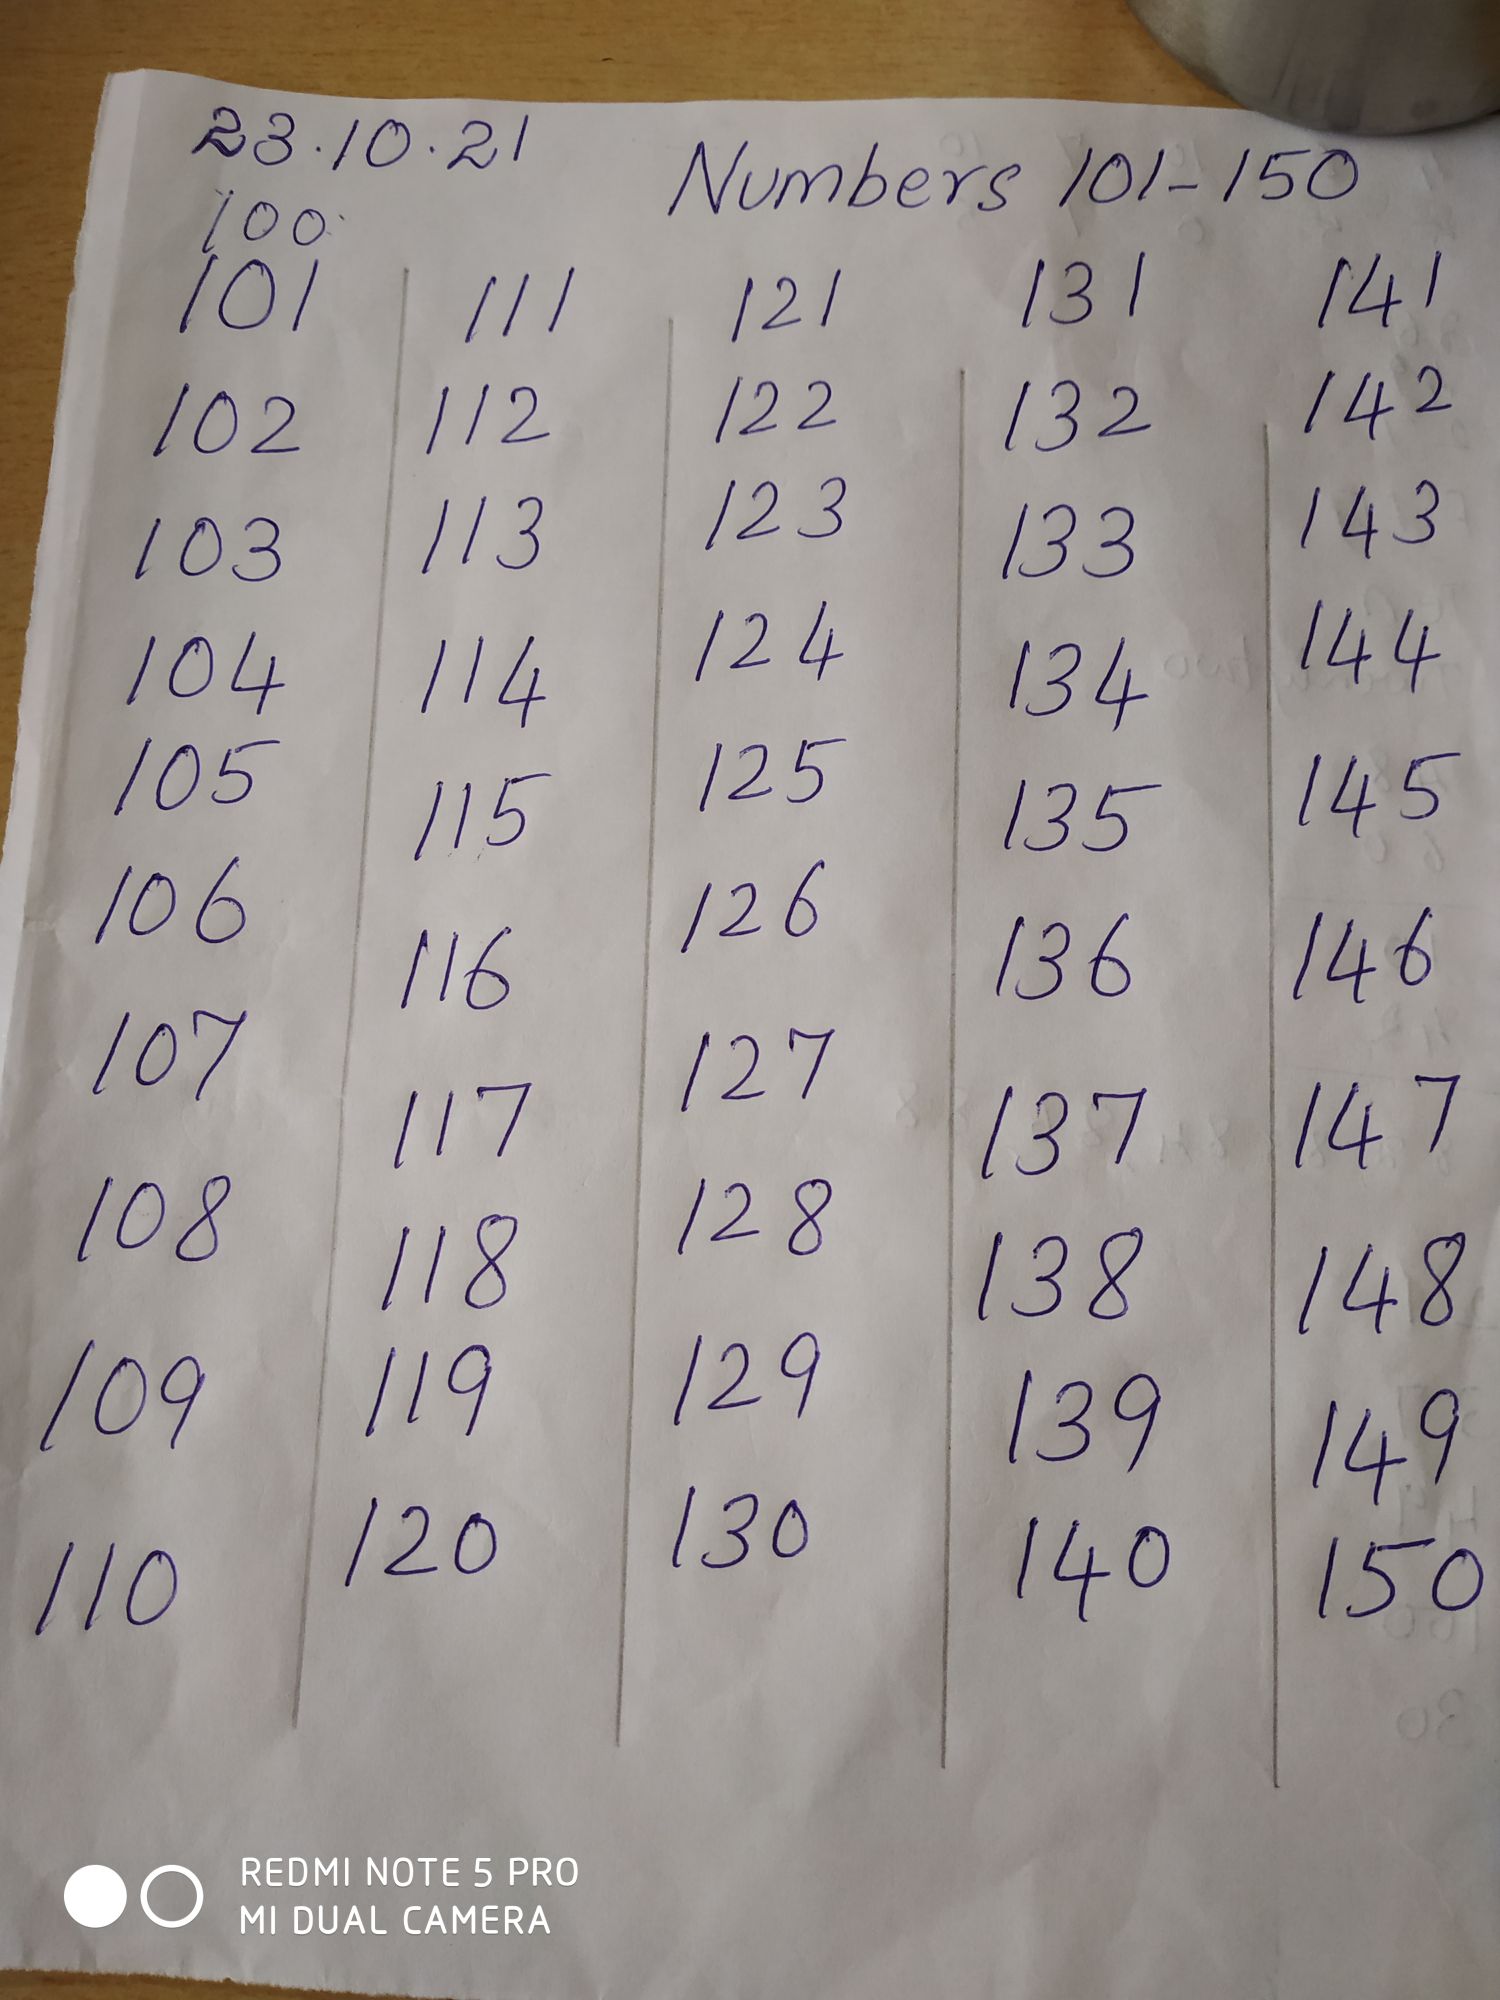 23.10.21
Numbers 101-150
100
101 111 121 131 141
102 112 122 132 142
103 113 123 133 143
104 114 124 134 144
105 115 125 135 145
106 116 126 136 146
107 117 127 137 147
108 118 128 138 148
109 119 129 139 149
110 120 130 140 150
REDMI NOTE 5 PRO
MI DUAL CAMERA